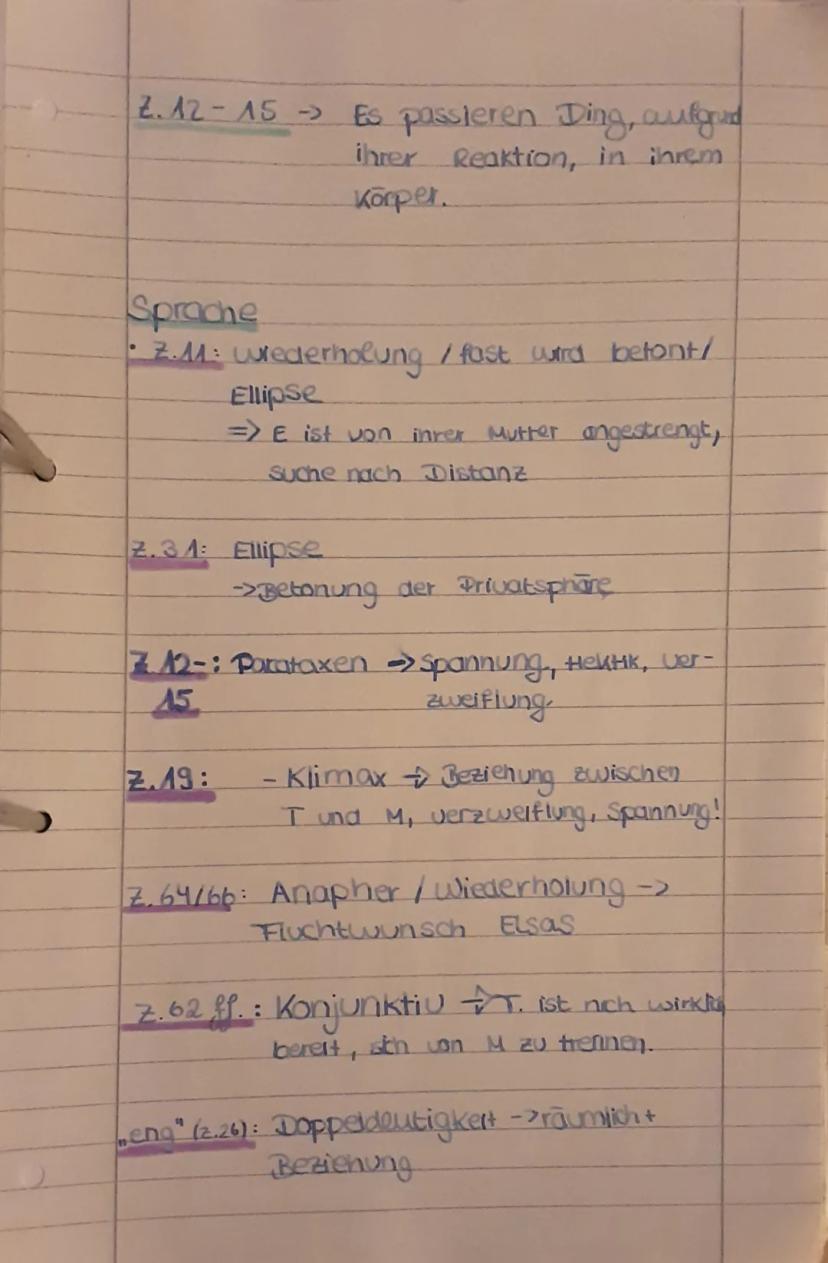 Z.12-15 -> Es passieren Ding, aufgrund
ihrer Reaktion, in ihrem
Körper.
Sprache
· Z.11: Wiederholung / fast wird betont/
Ellipse
=> E ist von ihrer Mutter angestrengt,
suche nach Distanz
Z.31: Ellipse
->Betonung der Privatsphäre
Z 12-: Parataxen -> Spannung, Hektik, ver-
15 zweiflung.
Z.19: - Klimax -> Beziehung zwischen
T und M, verzweiflung, Spannung!
Z.64/66: Anapher / Wiederholung ->
Fluchtwunsch Elsas
Z.62 ff.: Konjunktiv -> T. ist nch wirklich
bereit, sich von M zu trennen.
„eng" (Z.26): Doppeldeutigkeit -> räumlich +
Beziehung